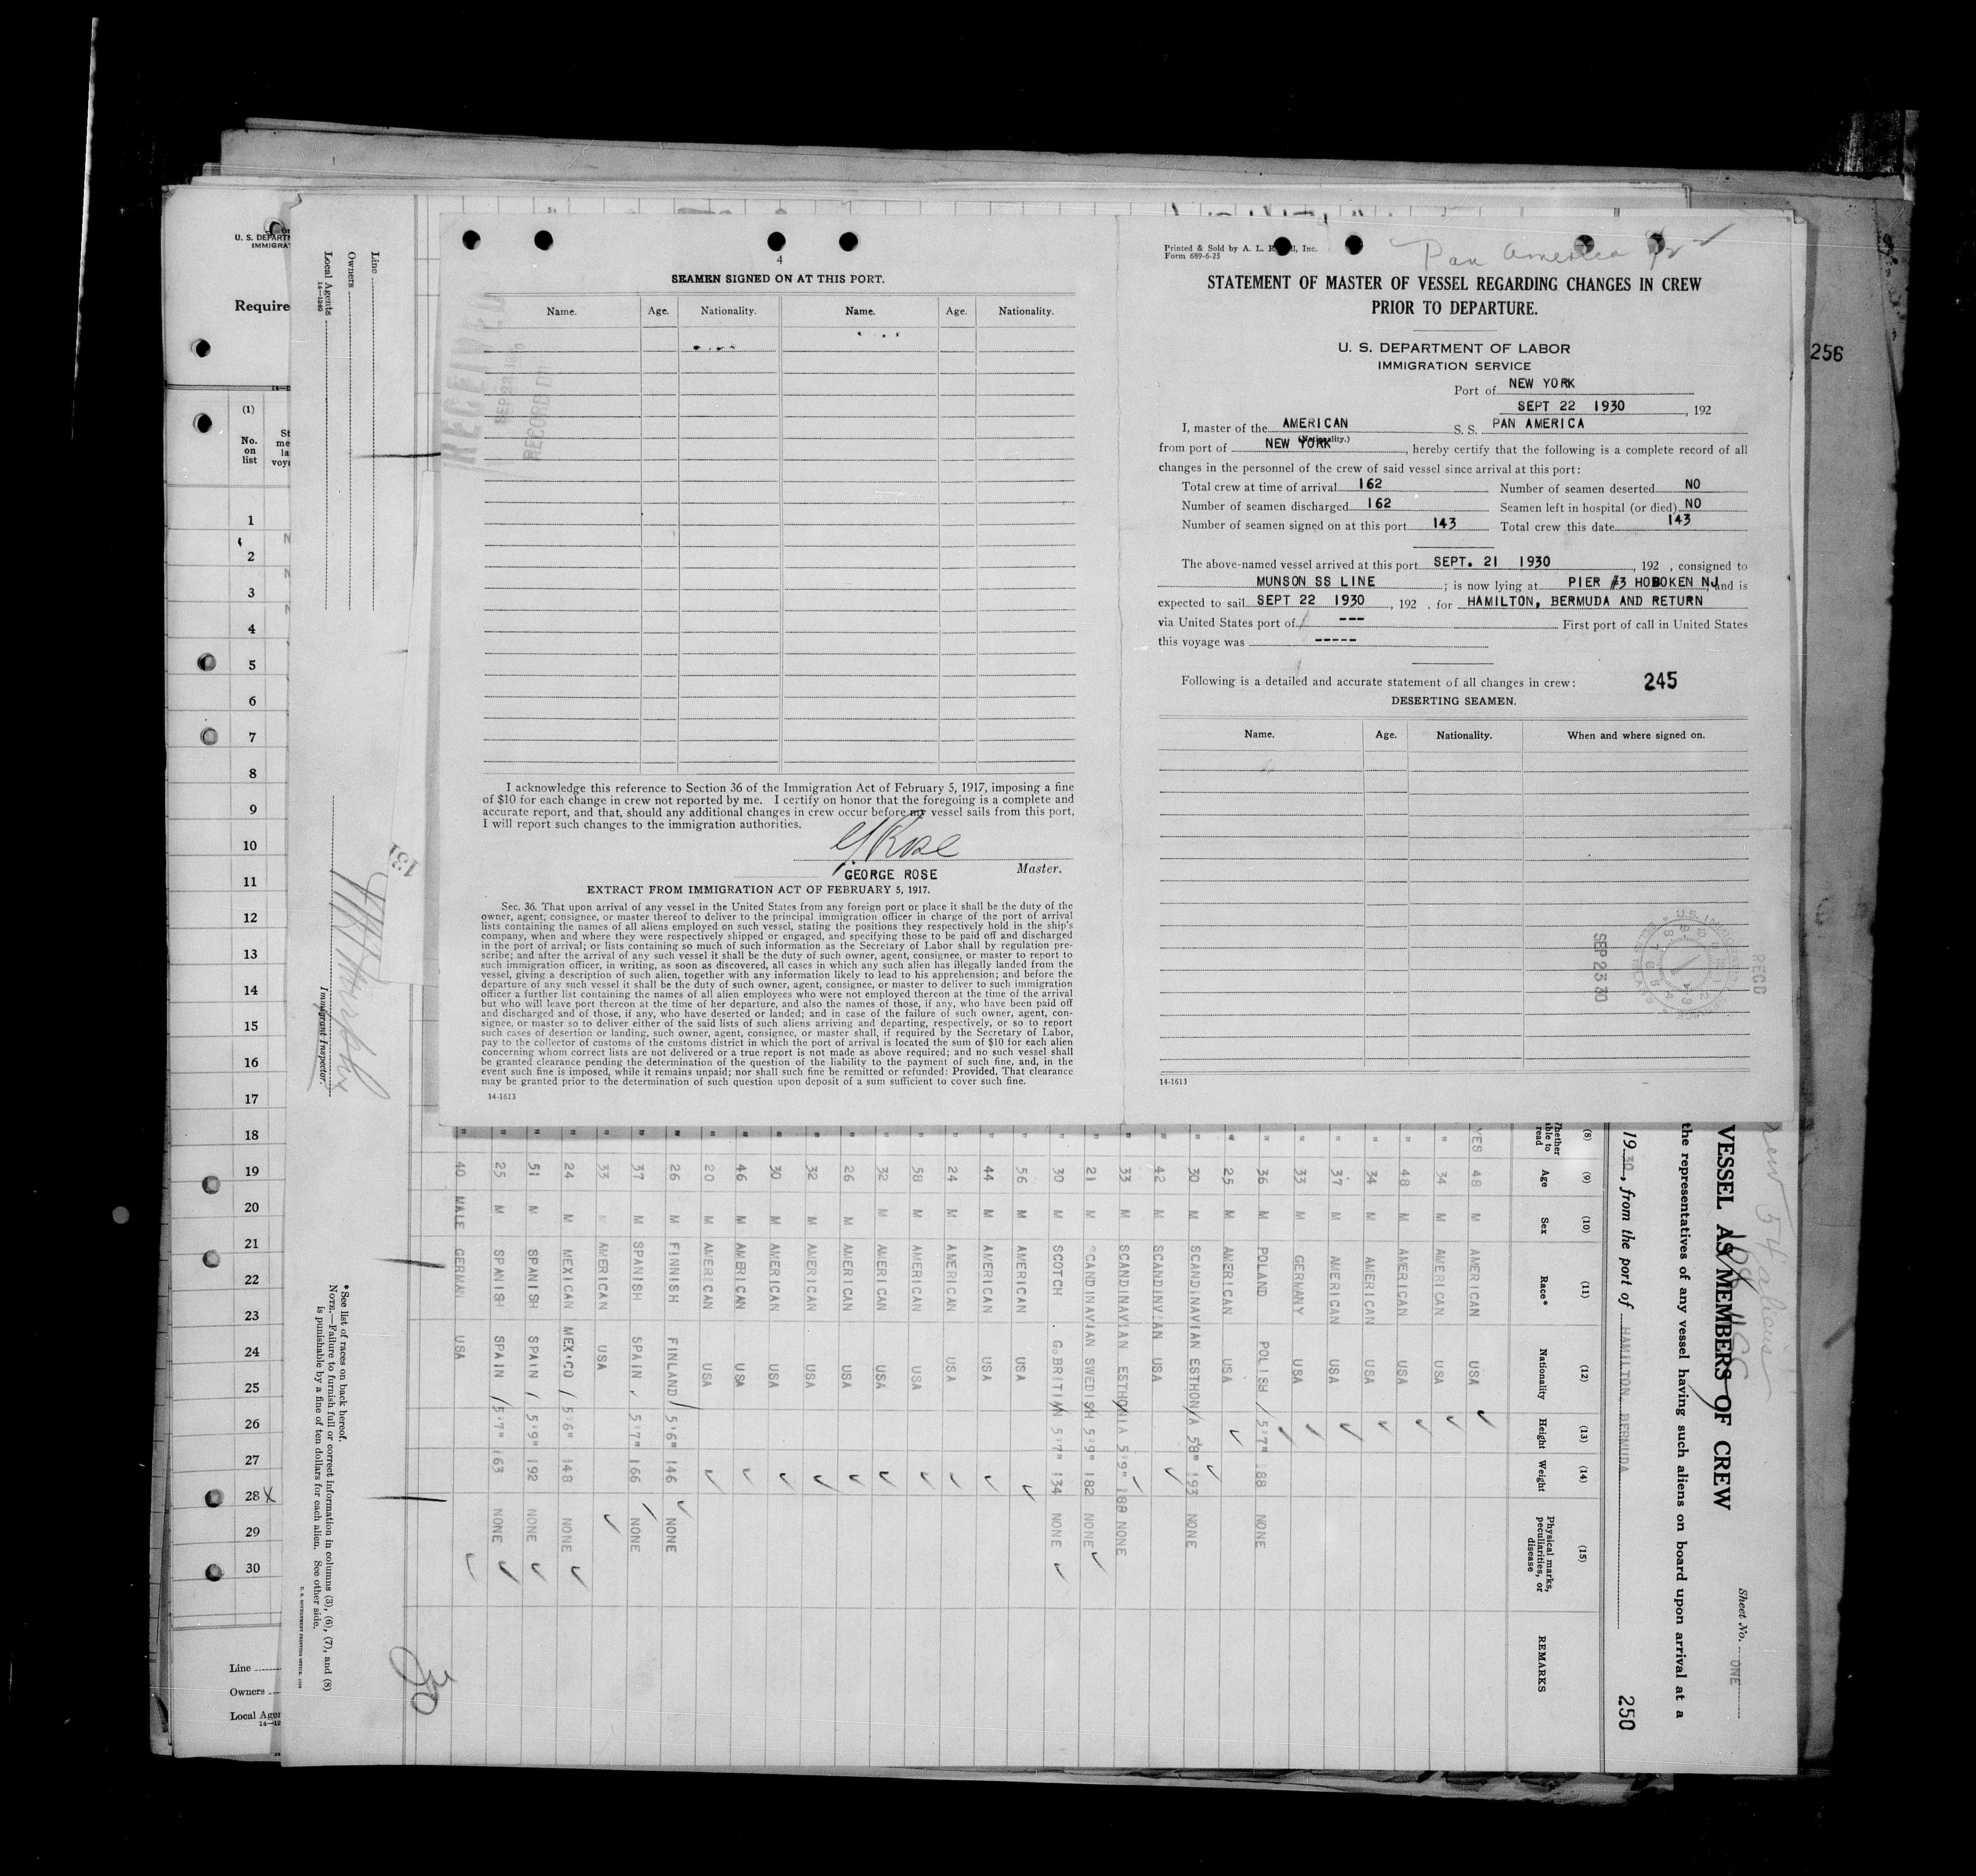 4
SEAMEN SIGNED ON AT THIS PORT.
Name. Age. Nationality. Name. Age. Nationality.
RECEIVED
RECORD DIV
I acknowledge this reference to Section 36 of the Immigration Act of February 5, 1917, imposing a fine
of $10 for each change in crew not reported by me. I certify on honor that the foregoing is a complete and
accurate report, and that, should any additional changes in crew occur before my vessel sails from this port,
I will report such changes to the immigration authorities.
G Rose
GEORGE ROSE Master.
EXTRACT FROM IMMIGRATION ACT OF FEBRUARY 5, 1917.
Sec. 36. That upon arrival of any vessel in the United States from any foreign port or place it shall be the duty of the
owner, agent, consignee, or master thereof to deliver to the principal immigration officer in charge of the port of arrival
lists containing the names of all aliens employed on such vessel, stating the positions they respectively hold in the ship's
company, when and where they were respectively shipped or engaged, and specifying those to be paid off and discharged
in the port of arrival; or lists containing so much of such information as the Secretary of Labor shall by regulation pre-
scribe; and after the arrival of any such vessel it shall be the duty of such owner, agent, consignee, or master to report to
such immigration officer, in writing, as soon as discovered, all cases in which any such alien has illegally landed from the
vessel, giving a description of such alien, together with any information likely to lead to his apprehension; and before the
departure of any such vessel it shall be the duty of such owner, agent, consignee, or master to deliver to such immigration
officer a further list containing the names of all alien employees who were not employed thereon at the time of the arrival
but who will leave port thereon at the time of her departure, and also the names of those, if any, who have been paid off
and discharged and of those, if any, who have deserted or landed; and in case of the failure of such owner, agent, con-
signee, or master so to deliver either of the said lists of such aliens arriving and departing, respectively, or so to report
such cases of desertion or landing, such owner, agent, consignee, or master shall, if required by the Secretary of Labor,
pay to the collector of customs of the customs district in which the port of arrival is located the sum of $10 for each alien
concerning whom correct lists are not delivered or a true report is not made as above required; and no such vessel shall
be granted clearance pending the determination of the question of the liability to the payment of such fine, and, in the
event such fine is imposed, while it remains unpaid; nor shall such fine be remitted or refunded: Provided, That clearance
may be granted prior to the determination of such question upon deposit of a sum sufficient to cover such fine.
14-1613
Printed & Sold by A. L. Inc.
Form 689-6-25
Pan America 9/22
STATEMENT OF MASTER OF VESSEL REGARDING CHANGES IN CREW
PRIOR TO DEPARTURE.
U. S. DEPARTMENT OF LABOR
IMMIGRATION SERVICE
Port of NEW YORK
SEPT 22 1930, 192
I, master of the AMERICAN S. S. PAN AMERICA
(Nationality.)
from port of NEW YORK, hereby certify that the following is a complete record of all
changes in the personnel of the crew of said vessel since arrival at this port:
Total crew at time of arrival 162 Number of seamen deserted NO
Number of seamen discharged 162 Seamen left in hospital (or died) NO
Number of seamen signed on at this port 143 Total crew this date 143
The above-named vessel arrived at this port SEPT. 21 1930, 192 , consigned to
MUNSON SS LINE; is now lying at PIER #3 HOBOKEN NJ, and is
expected to sail SEPT 22 1930, 192 . for HAMILTON, BERMUDA AND RETURN
via United States port of --- First port of call in United States
this voyage was -----
Following is a detailed and accurate statement of all changes in crew: 245
DESERTING SEAMEN.
Name. Age. Nationality. When and where signed on.
SEP 23 30
RECD
14-1613
256
U. S. DEPARTM
IMMIGRA
Require
(1)
No. on list
1
2
3
4
5
6
7
8
9
10
11
12
13
14
15
16
17
18
19
20
21
22
23
24
25
26
27
28 X
29
30
Line
Owners
Local Agen
Line
Owners
Local Agents
14-1240
131
Immigrant Inspector.
*See list of races on back hereof.
NOTE.—Failure to furnish full or correct information in columns (3), (6), (7), and (8)
is punishable by a fine of ten dollars for each alien. See other side.
30
Sheet No. ONE
VESSEL AS MEMBERS OF CREW
the representatives of any vessel having such aliens on board upon arrival at a
1930, from the port of HAMILTON, BERMUDA 250
(8) (9) (10) (11) (12) (13) (14) (15)
Whether able to read Age Sex Race* Nationality Height Weight Physical marks, peculiarities, or disease REMARKS
YES 48 M AMERICAN USA
" 34 M AMERICAN USA
" 48 M AMERICAN USA
" 34 M AMERICAN USA
" 37 M AMERICAN USA
" 33 M GERMANY USA
" 36 M POLAND POLISH 5'7" 188 NONE
" 25 M AMERICAN USA
" 30 M SCANDINAVIAN ESTHONIA 5'8" 193 NONE
" 42 M SCANDINVIAN USA
" 33 M SCANDINAVIAN ESTHONIA 5'9" 188 NONE
" 21 M SCANDINAVIAN SWEDISH 5'9" 182 NONE
" 30 M SCOTCH G.BRITIAN 5'7" 134 NONE
" 56 M AMERICAN USA
" 44 M AMERICAN USA
" 24 M AMERICAN USA
" 58 M AMERICAN USA
" 32 M AMERICAN USA
" 26 M AMERICAN USA
" 32 M AMERICAN USA
" 30 M AMERICAN USA
" 46 M AMERICAN USA
" 20 M AMERICAN USA
" 26 M FINNISH FINLAND 5'6" 146 NONE
" 37 M SPANISH SPAIN 5'7" 166 NONE
" 33 M AMERICAN USA
" 24 M MEXICAN MEXICO 5'6" 148 NONE
" 51 M SPANISH SPAIN 5'9" 192 NONE
" 25 M SPANISH SPAIN 5'7" 163 NONE
" 40 MALE GERMAN USA